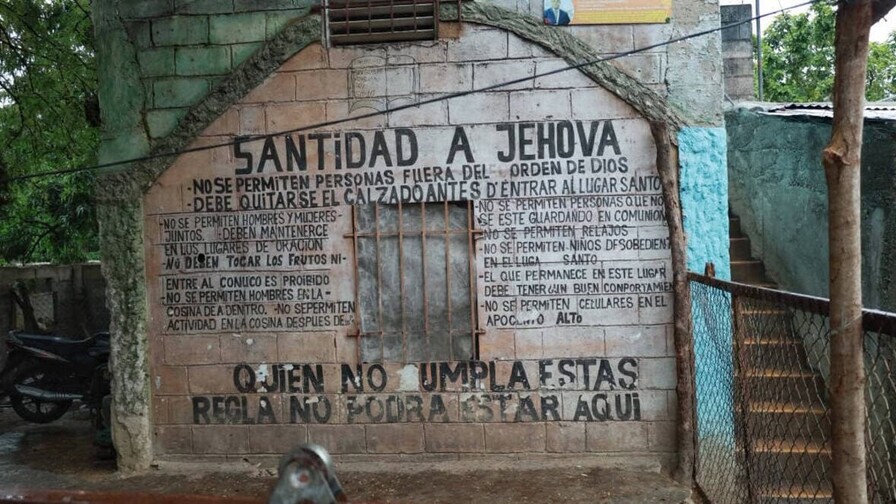 SANTIDAD A JEHOVA
-NO SE PERMITEN PERSONAS FUERA DEL ORDEN DE DIOS
-DEBE QUITARSE EL CALZADO ANTES D'ENTRAR AL LUGAR SANTO
-NO SE PERMITEN HOMBRES Y MUJERES
JUNTOS. DEBEN MANTENERCE
EN LOS LUGARES DE ORACION
-NO DEBEN TOCAR LOS FRUTOS NI-
ENTRE AL CONUCO ES PROIBIDO
-NO SE PERMITEN HOMBRES EN LA-
COSINA DE A DENTRO. -NO SEPERMITEN
ACTIVIDAD EN LA COSINA DESPUES DE
-NO SE PERMITEN PERSONAS QUE NO
SE ESTE GUARDANDO EN COMUNION
-NO SE PERMITEN RELAJOS
-NO SE PERMITEN NIÑOS DESOBEDIEN
EN EL LUGA SANTO
-EL QUE PERMANECE EN ESTE LUGAR
DEBE TENER UN BUEN CONPORTAMIEN
-NO SE PERMITEN CELULARES EN EL
APOCENTO ALTO
QUIEN NO UMPLA ESTAS
REGLA NO PODRA ESTAR AQUI